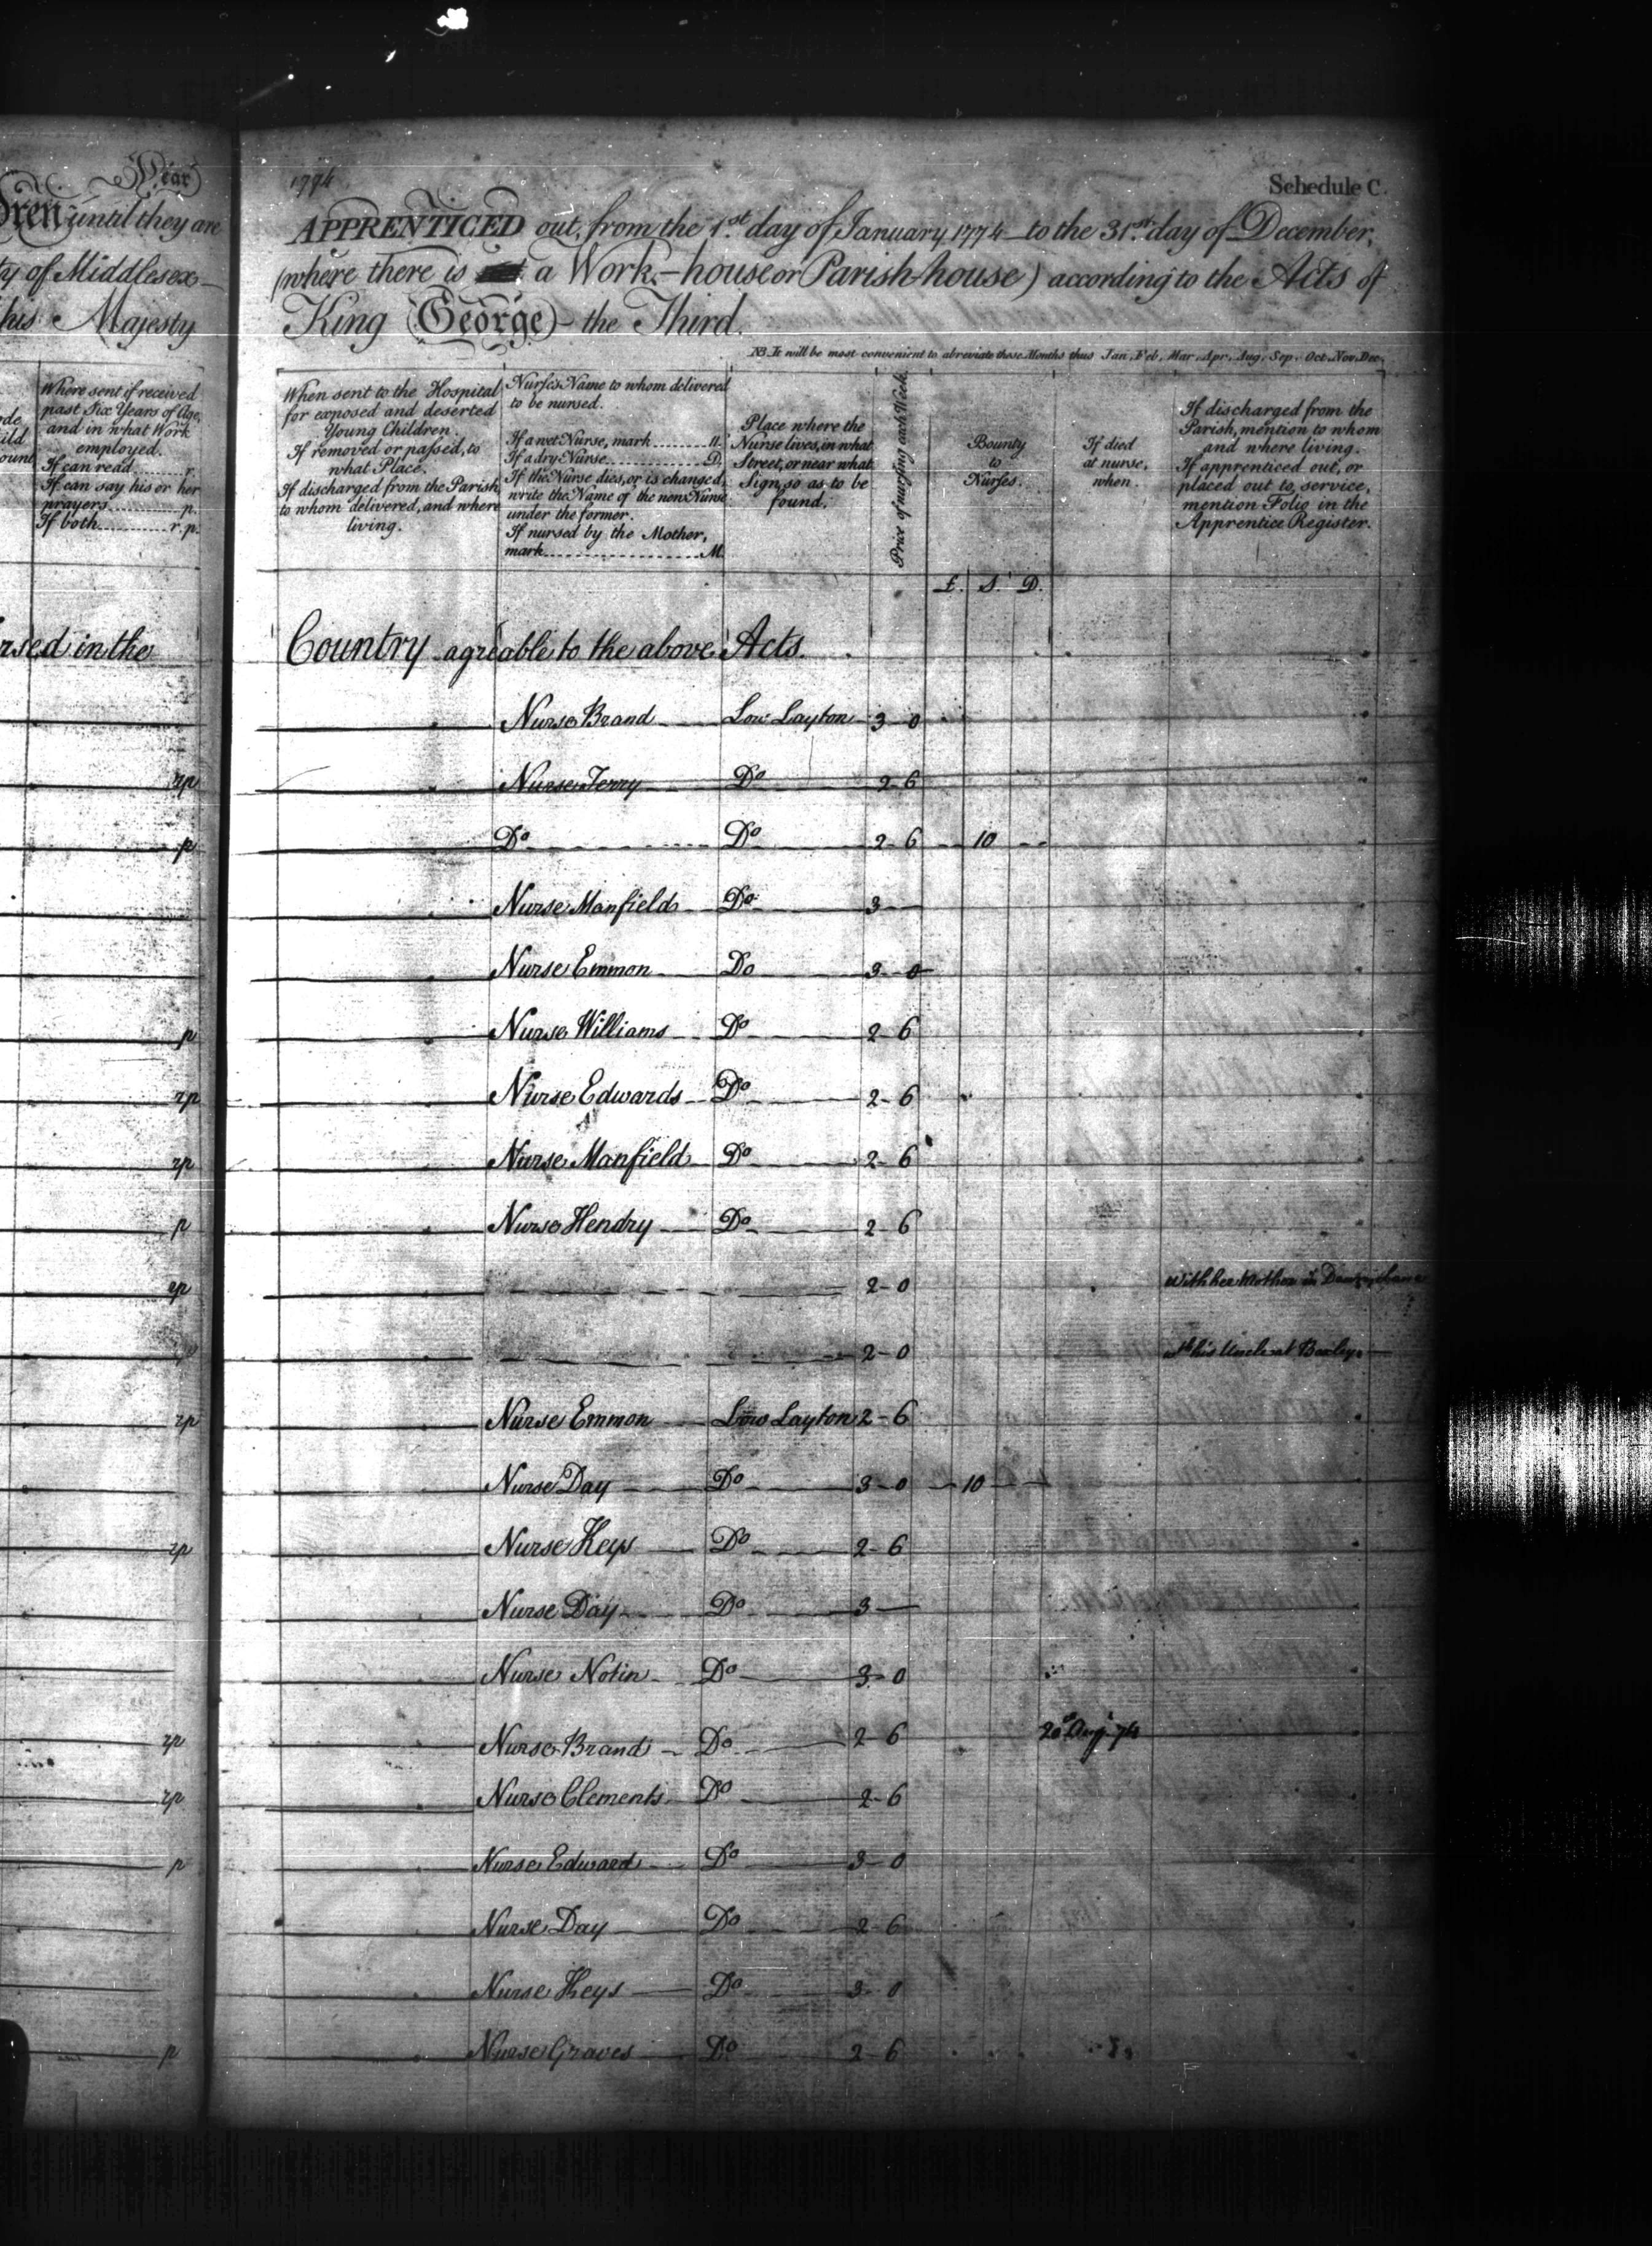 Year
dren until they are
ty of Middlesex
his Majesty
Where sent if received
past Six Years of Age,
and in what Work
employed.
If can read ........ r.
If can say his or her
prayers ........ p.
If both ........ r.p.
rsed in the
rp
p
p
rp
rp
p
rp
rp
rp
rp
rp
p
p
1774
Schedule C.
APPRENTICED out, from the 1st. day of January 1774 to the 31st. day of December,
(where there is a Work-house or Parish-house) according to the Acts of
King George the Third.
NB. It will be most convenient to abreviate those Months thus Jan. Feb. Mar. Apr. Aug. Sep. Oct. Nov. Dec.
When sent to the Hospital
for exposed and deserted
Young Children.
If removed or passed, to
what Place.
If discharged from the Parish,
to whom delivered, and where
living.
Nurse's Name to whom delivered
to be nursed.
If a wet Nurse, mark ........
If a dry Nurse ........ D.
If the Nurse dies, or is changed,
write the Name of the new Nurse
under the former.
If nursed by the Mother,
mark ........ M.
Place where the
Nurse lives, in what
Street, or near what
Sign, so as to be
found.
Price of nursing each Week.
Bounty
to
Nurses.
If died
at nurse,
when.
If discharged from the
Parish, mention to whom
and where living.
If apprenticed out, or
placed out to service,
mention Folio in the
Apprentice Register.
£. S. D.
Country agreable to the above Acts.
Nurse Brand Low Layton 3 - 0
Nurse Terry Do 2 - 6
Do Do 2 - 6 10
Nurse Manfield Do 3 -
Nurse Emmon Do 3 - 0
Nurse Williams Do 2 - 6
Nurse Edwards Do 2 - 6
Nurse Manfield Do 2 - 6
Nurse Hendry Do 2 - 6
2 - 0 With her Mother in
2 - 0 his Uncle at
Nurse Emmon Low Layton 2 - 6
Nurse Day Do 3 - 0 10
Nurse Keys Do 2 - 6
Nurse Day Do 3 -
Nurse Notin Do 3 - 0
Nurse Brand Do 2 - 6 20 Aug 74
Nurse Clements Do 2 - 6
Nurse Edward Do 3 - 0
Nurse Day Do 2 - 6
Nurse Keys Do 3 - 0
Nurse Graves Do 2 - 6